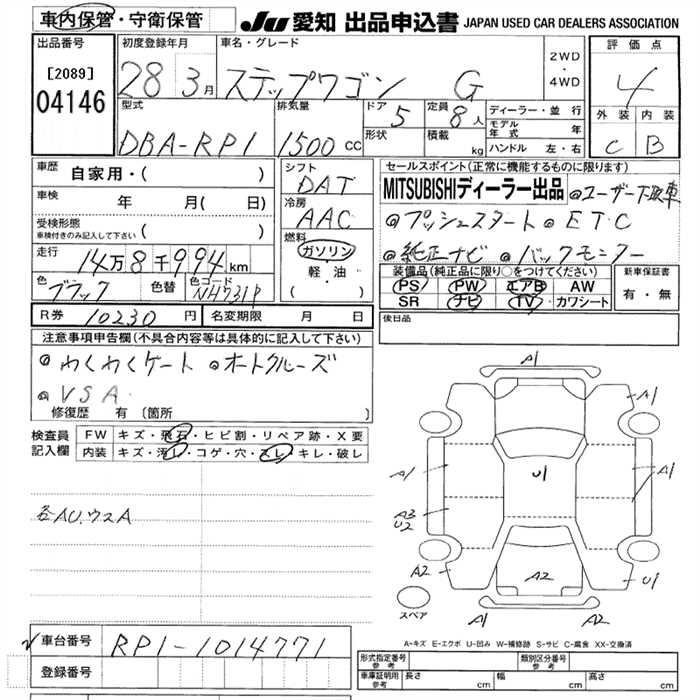 車内保管・守衛保管 JU 愛知 出品申込書 JAPAN USED CAR DEALERS ASSOCIATION
出品番号 初度登録年月 車名・グレード 2WD ・ 4WD 評価点
[2089] 04146 28 3月 ステップワゴン G 4
型式 排気量 ドア 5 定員 8人 ディーラー・並行 外装 内装
モデル年式 年
DBA-RP1 1500cc 形状 積載 kg ハンドル 左・右 C B
車歴 自家用・( ) シフト DAT セールスポイント(正常に機能するものに限ります)
車検 年 月( 日) 冷房 AAC MITSUBISHIディーラー出品 @ユーザー下取車
受検形態 車検付きのみ記入して下さい ( ) @プッシュスタート @ETC
走行 14万8千994km 燃料 ガソリン @純正ナビ @バックモニター
軽油・ ( ) 装備品(純正品に限り○をつけてください) 新車保証書
色 ブラック 色替 色コード NH731P PS PW エアB AW 有・無
SR ナビ TV カワシート
R券 10230円 名変期限 月 日 後日品
注意事項申告欄(不具合内容等は具体的に記入して下さい)
@わくわくゲート @オートクルーズ
@VSA
修復歴 有(箇所 )
検査員記入欄 FW キズ・飛石・ヒビ割・リペア跡・X要
内装 キズ・汚れ・コゲ・穴・スレ・キレ・破レ
A1
A1
A1 U1 A1
A3
U2
各AU.ウスA
A2 A2 U1
スペア A1 A2
A-キズ E-エクボ U-凹み W-補修跡 S-サビ C-腐食 XX-交換済
車台番号 RP1-1014771
登録番号
形式指定番号 参考 類別区分番号 参考
車庫証明用 参考 長さ cm 幅 cm 高さ cm